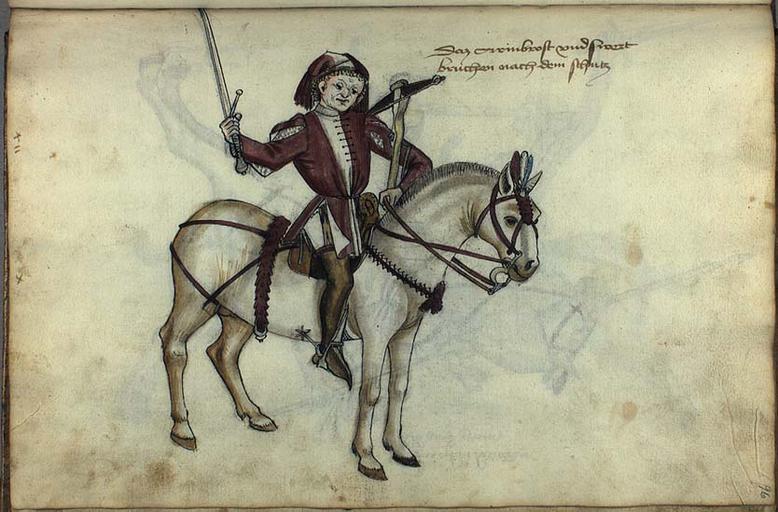 Den armbrost vnd swert
bruchen nach dem schutz
96